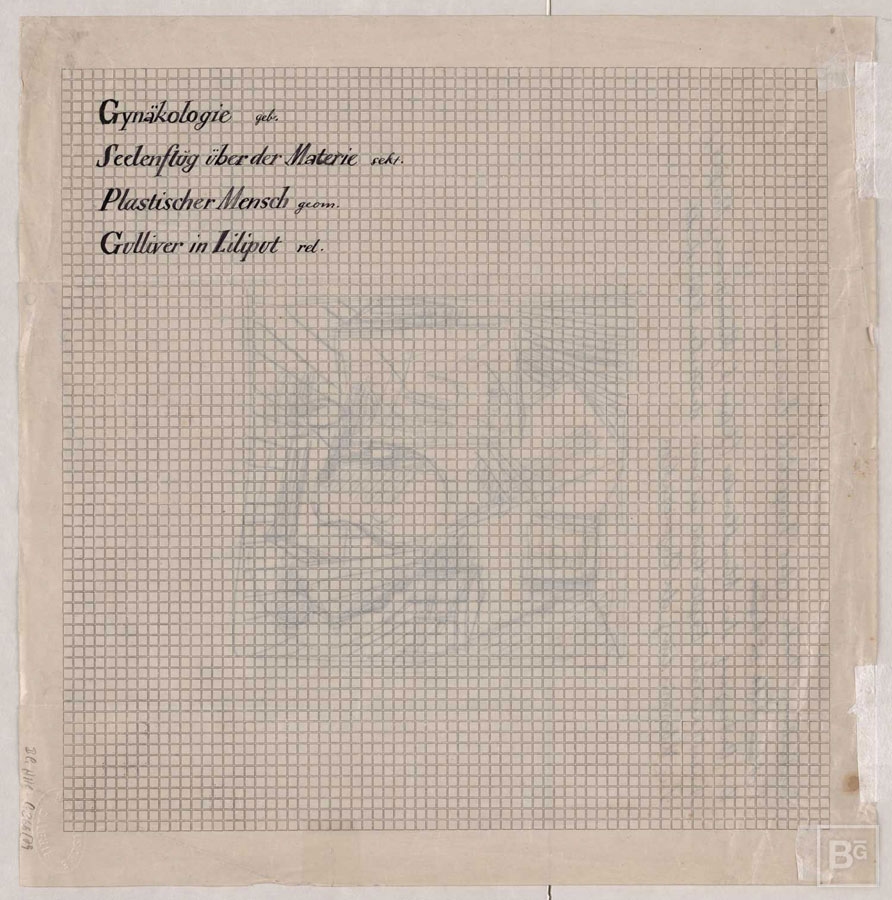 Gynäkologie geb.
Seelenflüg über der Materie sekt.
Plastischer Mensch geom.
Gulliver in Liliput rel.
BG